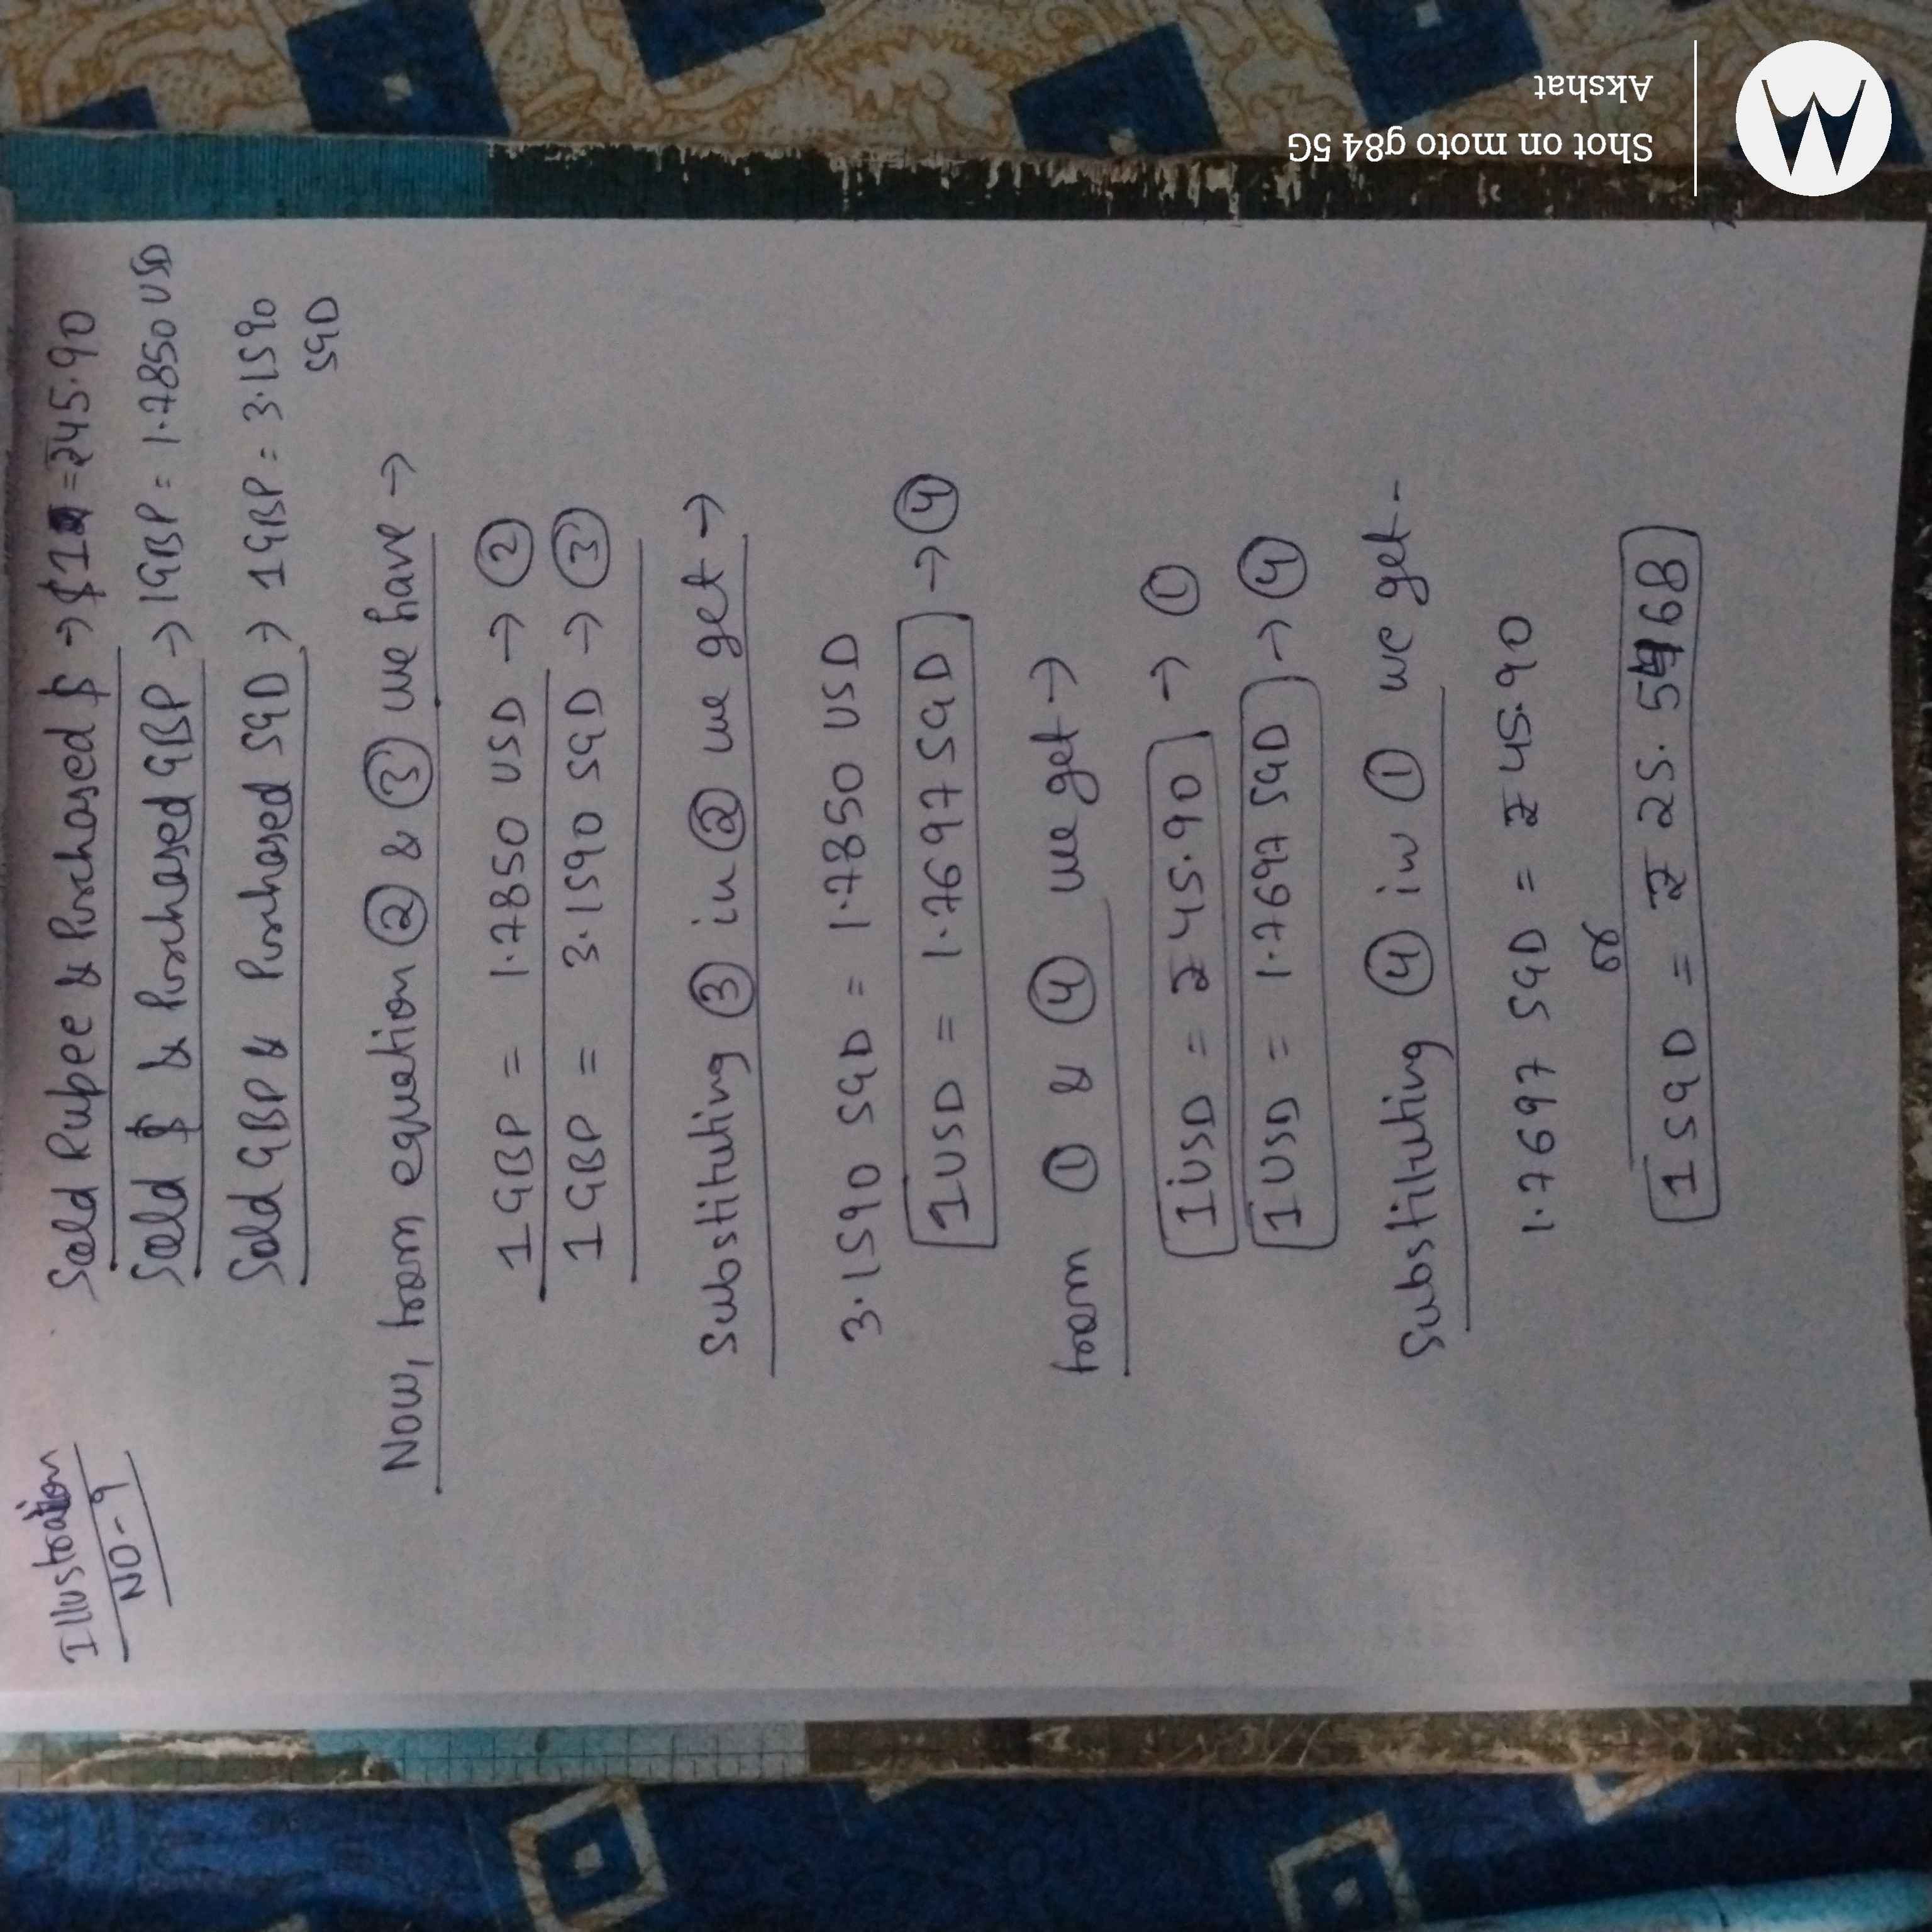 Illustration
NO-9
Sold Rupee & Purchased $ → $1 = ₹45.90
Sold $ & Purchased GBP → 1GBP = 1.7850 USD
Sold GBP & Purchased SGD → 1GBP = 3.1590
SGD
Now, from equation ② & ③ we have →
1GBP = 1.7850 USD → ②
1GBP = 3.1590 SGD → ③
Substituting ③ in ② we get →
3.1590 SGD = 1.7850 USD
1USD = 1.7697 SGD → ④
from ① & ④ we get →
1USD = ₹45.90 → ①
1USD = 1.7697 SGD → ④
Substituting ④ in ① we get -
1.7697 SGD = ₹45.90
or
1SGD = ₹25.5468
Shot on moto g84 5G
Akshat